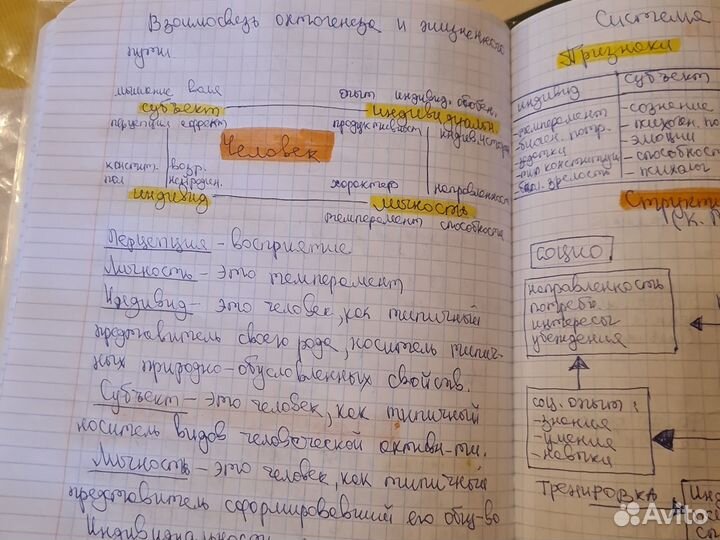 Взаимосвязь онтогенеза и жизненного
пути
мышление воля
опыт индивид. особен.
субъект
индивидуальн.
перцепция аффект
продуктивность индив. истор
Человек
констит. возр.
пол нейроден.
характер направленность
индивид
личность
темперамент способности
Перцепция - восприятие
Личность - это темперамент
Индивид - это человек, как типичный
представитель своего рода, носитель типич-
ных природно-обусловленных свойств.
Субъект - это человек, как типичный
носитель видов человеческой активн-ти.
Личность - это человек, как типичный
представитель сформировавший его общ-во
Индивидуальность
Система
Признаки
индивид
субъект
-темперамент
-биолог. потр.
-задатки
-тип конституции
-биол. зрелость
-сознание
-психолог. по
-эмоции
-способност
-психолог
Структ
(К. П
социо
направленность
потребн
интересы
убеждения
соц. опыт:
-знания
-умения
-навыки
Тренировка
Инд
Avito